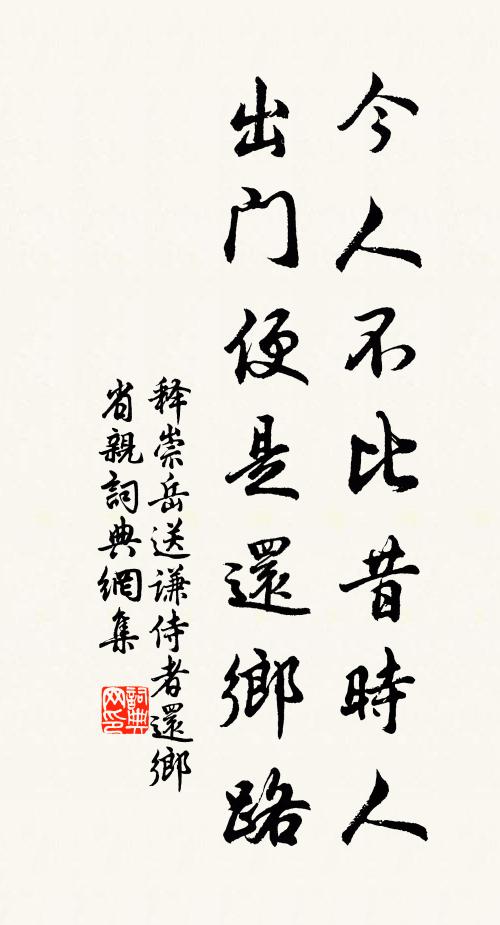 今人不比昔時人
出门便是還鄉路
释崇岳送谦侍者還鄉
省親詞典網集
詞典网印